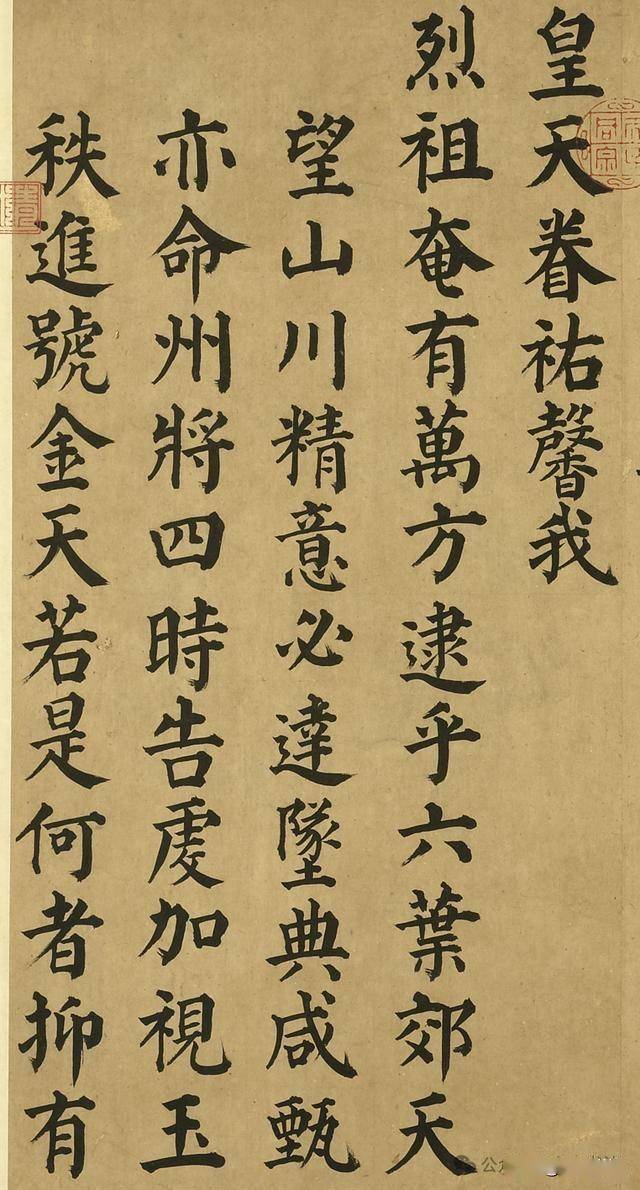 皇天眷祐馨我
烈祖奄有萬方逮乎六葉郊天
望山川精意必達墜典咸甄
亦命州將四時告虔加視玉
秩進號金天若是何者抑有